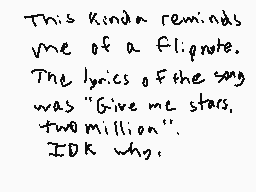 This kinda reminds
me of a flipnote.
The lyrics of the song
was "Give me stars,
two million".
IDK why.